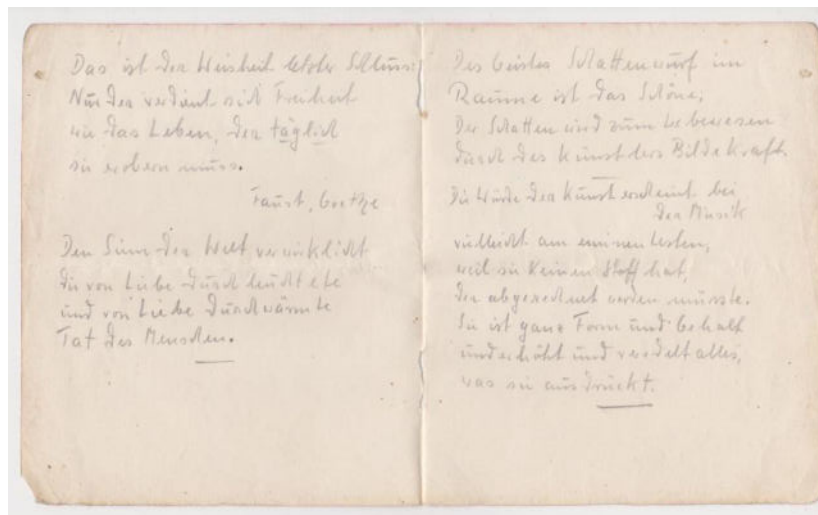 Das ist der Weisheit letzter Schluss:
Nur der verdient sich Freiheit
wie das Leben, der täglich
sie erobern muss.
Faust, Goethe
Den Sinn der Welt verwirklicht
die von Liebe durchleuchtete
und von Liebe durchwärmte
Tat des Menschen.
Des Geistes Schattenwurf im
Raume ist das Schöne;
Der Schatten wird zum Lebewesen
durch des Künstlers Bildekraft.
Die Würde der Kunst erscheint bei
der Musik
vielleicht am eminentesten,
weil sie keinen Stoff hat,
der abgerechnet werden müsste.
Sie ist ganz Form und Gehalt
und erhöht und veredelt alles,
was sie ausdrückt.